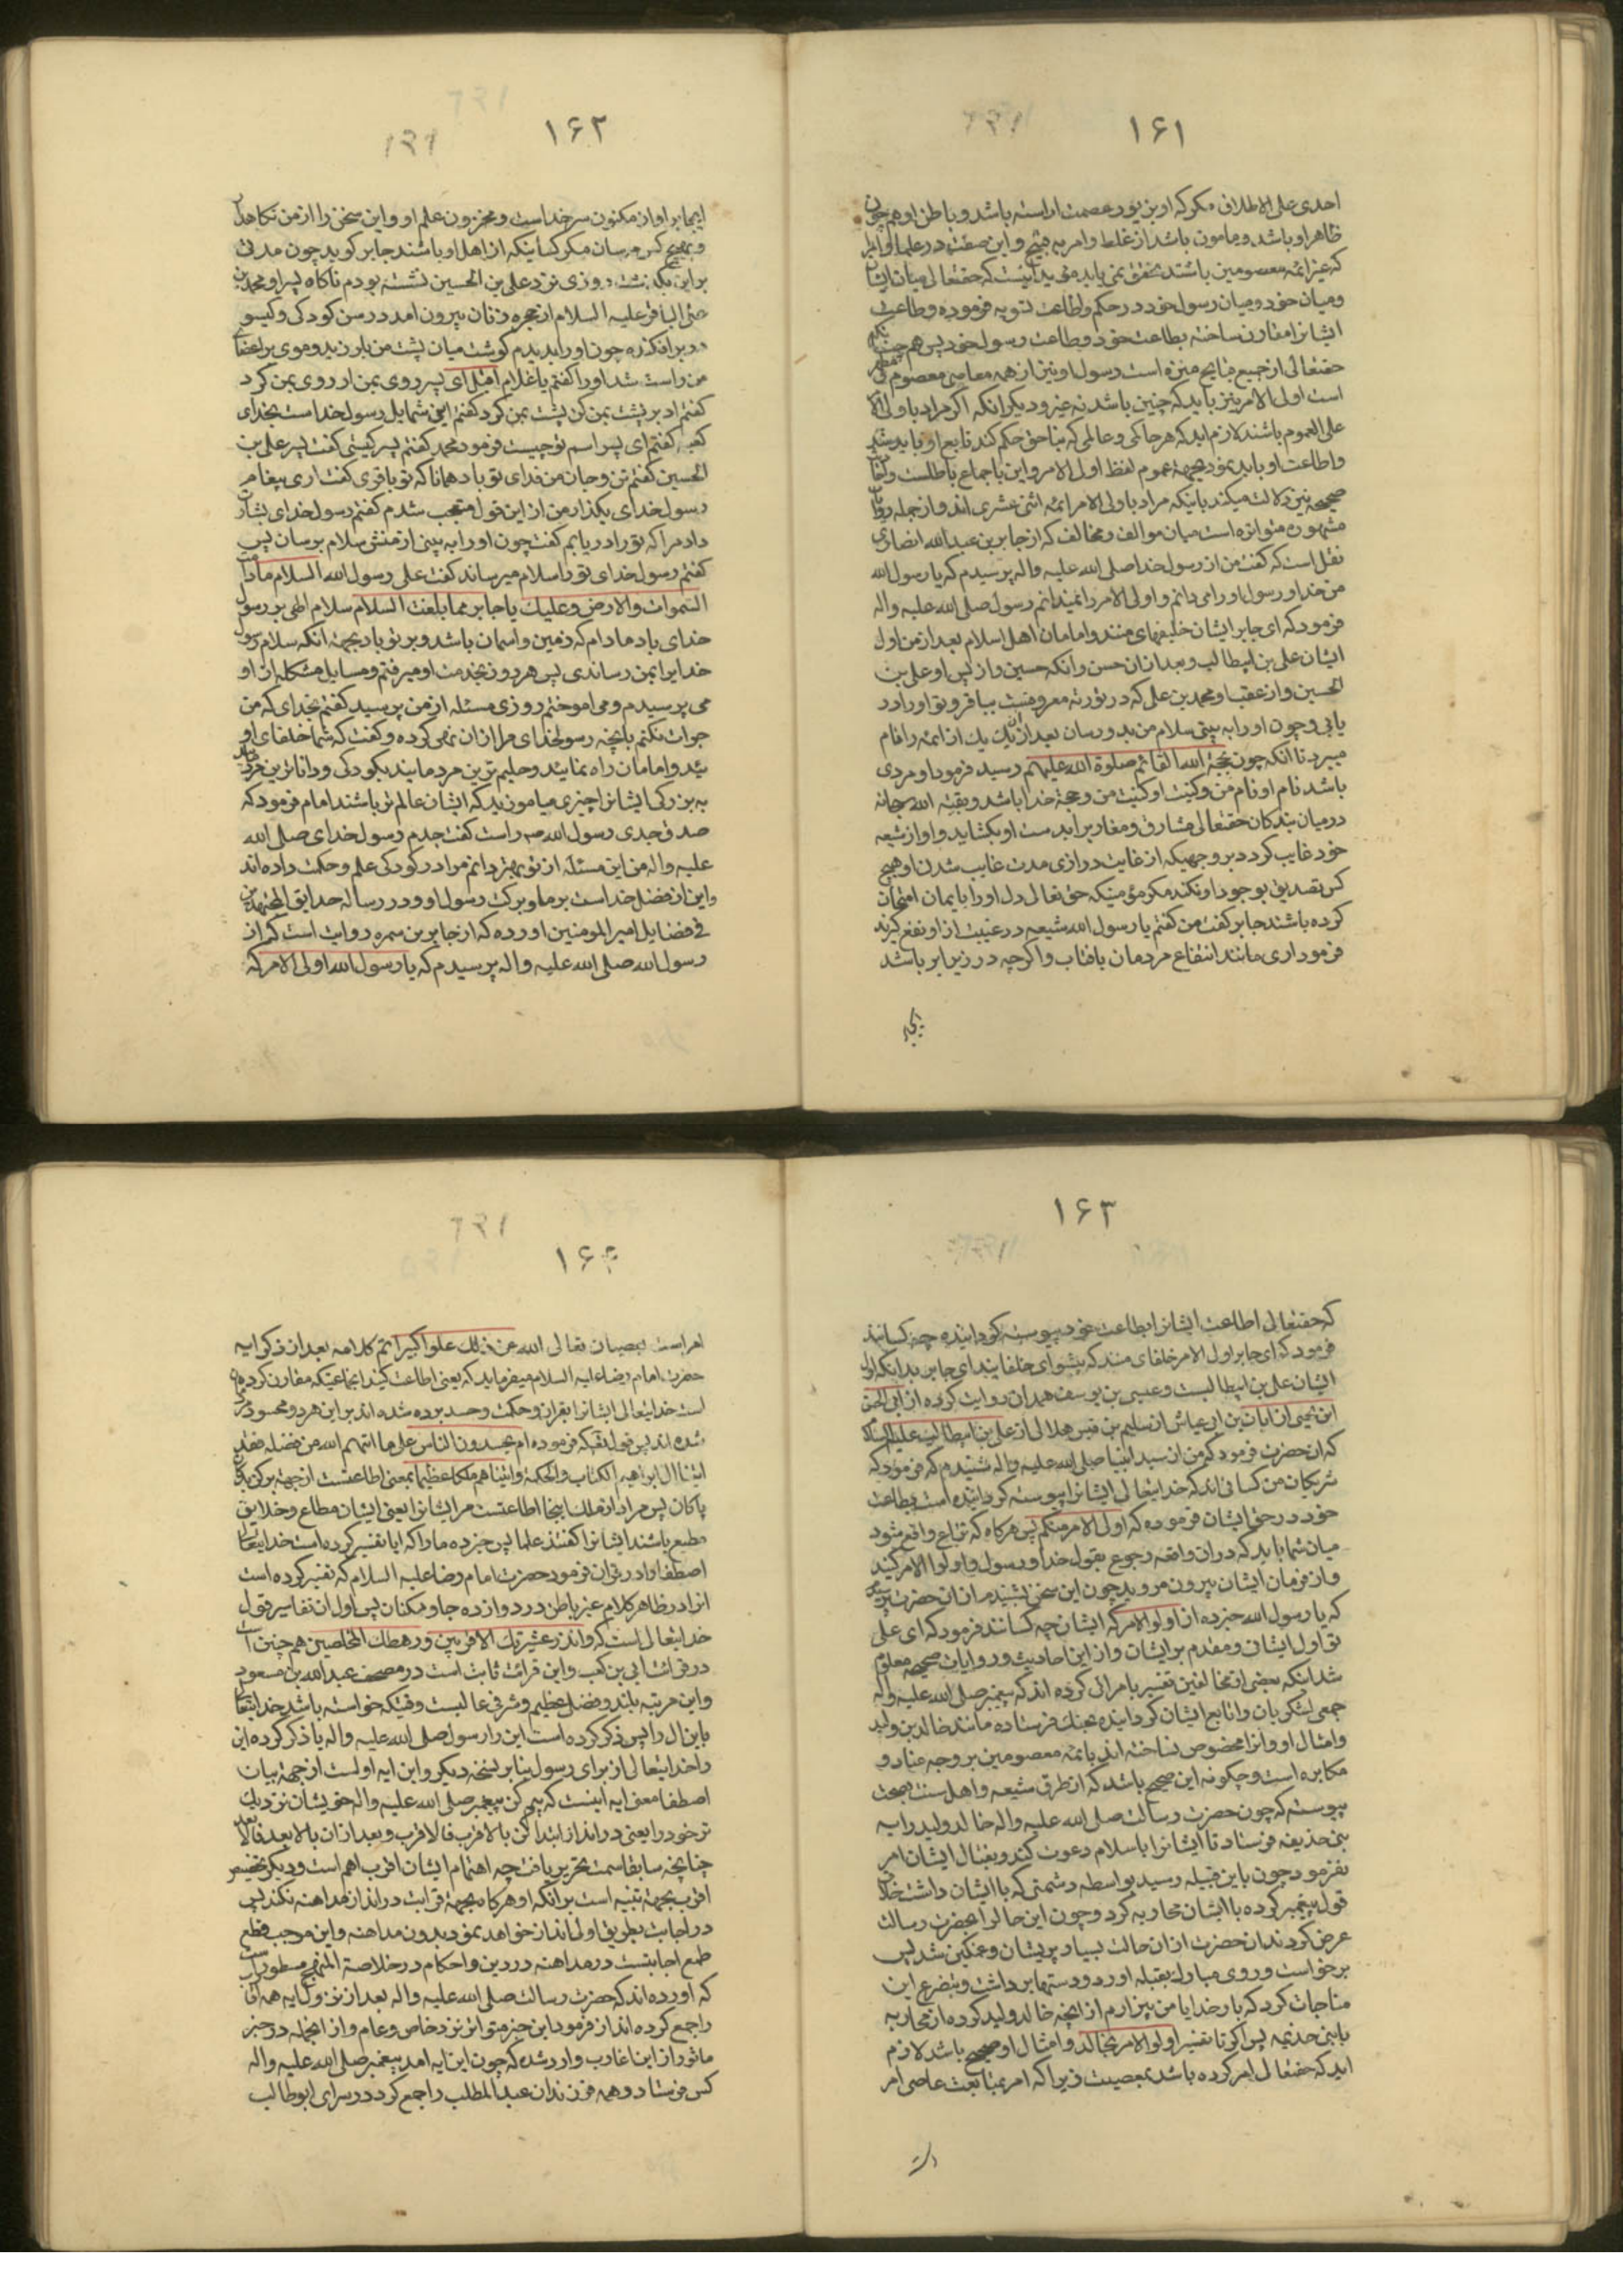 ۱۶۱
احدی علی الاطلاق مکر که او بنور عصمت اراسته باشد و باطن او هم چون
ظاهر او باشد و مامون باشد از غلط و امر به قبیح و این صفت در علما و امرا
که غیر ائمه معصومین باشند تحقق نمی یابد مؤید اینست که حقتعالی میان ایشان
و میان خود و میان رسول خود در حکم و اطاعت تسویه فرموده و طاعت
ایشانرا مقارن ساخته بطاعت خود و بطاعت رسول خود پس هم چنانکه
حقتعالی از جمیع قبایح منزه است و رسول او نیز از همه معاصی معصوم
است اولی الامر نیز باید که چنین باشد نه غیر و دیکر انکه اکر مراد باولی الامر
علی العموم باشند لازم اید که هر حاکمی و عالمی که بناحق حکم کند تابع او باید شد
و اطاعت او باید نمود بجهة عموم لفظ اولی الامر و این باجماع باطلست و روایات
صحیحه نیز دلالت میکند باینکه مراد باولی الامر ائمه اثنی عشری اند و از جمله روایات
مشهوره متواتره است میان موالف و مخالف که از جابر بن عبد الله انصاری
نقل است که کفت من از رسول خدا صلی الله علیه و اله پرسیدم که یا رسول الله
من خدا و رسول او را می دانم و اولی الامر را نمیدانم رسول صلی الله علیه و اله
فرمود که ای جابر ایشان خلیفهای منند و امامان اهل اسلام بعد از من اول
ایشان علی بن ابیطالب و بعد از ان حسن و انکه حسین و از پس او علی بن
الحسین و از عقب او محمد بن علی که در توریة معروفست بباقر و تو او را در
یابی و چون او را به بینی سلام من بدو رسان بعد از ان یک یک از ائمه را نام
میبرد تا انکه چون بحجة الله القائم صلوة الله علیهم رسید فرمود او مردی
باشد نام او نام من و کنیت او کنیت من و حجة خدا باشد و بقیة الله سبحانه
در میان بندکان حقتعالی مشارق و مغارب را بدست او بکشاید و او از شیعه
خود غایب کردد بر وجهیکه از غایت درازی مدت غایب شدن او هیچ
کس تصدیق بوجود او نکند مکر مؤمنیکه حق تعالی دل او را بایمان امتحان
کرده باشند جابر کفت من کفتم یا رسول الله شیعه در غیبت از او نفع کیرند
فرمود اری مانند انتفاع مردمان بافتاب و اکرچه در زیر ابر باشد
۱۶۲
ایجابر او از مکنون سر خداست و مخزون علم او و این سخن را از من نکاهدار
و بهیچ کس مرسان مکر کسانیکه از اهل او باشند جابر کوید چون مدتی
بر این بکذشت روزی نزد علی بن الحسین نشسته بودم ناکاه پسر او محمد بن
علی الباقر علیه السلام از حجره زنان بیرون امد در سن کودکی و کیسو
در بر افکنده چون او را بدیدم کوشت میان پشت من بلرزید و موی بر اعضای
من راست شد او را کفتم یا غلام اقبل ای پسر روی بمن ار روی بمن کرد
کفتم ادبر پشت بمن کن پشت بمن کرد کفتم این شمایل رسول خداست بخدای
کعبه کفتم ای پسر اسم تو چیست فرمود محمد کفتم پسر کیستی کفت پسر علی بن
الحسین کفتم تن و جان من فدای تو باد همانا که تو باقری کفت اری پیغام
رسول خدای بکذار من از این قول متعجب شدم کفتم رسول خدای بشارت
داد مرا که تو را دریابم کفت چون او را به بینی از منش سلام برسان پس
کفتم رسول خدای تو را سلام میرساند کفت علی رسول الله السلام مادامت
السموات و الارض و علیک یا جابر مما بلغت السلام سلام الهی بر رسول
خدای باد مادام که زمین و اسمان باشد و بر تو باد بجهة انکه سلام رسول
خدا برا بمن رساندی پس هر روز بخدمت او میرفتم و مسایل مشکله از او
می پرسیدم و می اموختم روزی مسئله از من پرسید کفتم بخدای که من
جرات نکنم بانچه رسول خدای مرا از ان نهی کرده و کفت که شما خلفای او
ئید و امامان راه نمایند و حلیم ترین مردمانید بکودکی و داناترین مردمان
به بزرکی ایشانرا چیزی میاموزید که ایشان عالم تر باشند امام فرمود که
صدق جدی رسول الله ص راست کفت جدم رسول خدای صلی الله
علیه و اله من این مسئله از تو بهتر دانم مرا در کودکی علم و حکمت داده اند
و این از فضل خداست بر ما و برکت رسول او و در رساله حدایق
فی فضایل امیر المومنین اورده که از جابر بن سمره روایت است که از
رسول الله صلی الله علیه و اله پرسیدم که یا رسول الله اولی الامر که
۱۶۳
که حقتعالی اطاعت ایشانرا بطاعت خود پیوسته کردانیده چه کسانند
فرمود که ای جابر اول الامر خلفای منند که پیشوای خلفایند ای جابر بدانکه اول
ایشان علی بن ابیطالبست و عیسی بن یوسف همدان روایت کرده از ابی الحسن
ابن یحیی از ابان بن ابی عیاش از سلیم بن قیس هلالی از علی بن ابیطالب علیه السلام
که ان حضرت فرمود که من از سید انبیا صلی الله علیه و اله شنیدم که فرمود که
شریکان من کسانی اند که خدایتعالی ایشانرا پیوسته کردانیده است بطاعت
خود در حق ایشان فرموده که اولی الامر منکم پس هرکاه که نزاع واقع شود
میان شما باید که در ان واقعه رجوع بقول خدا و رسول و اولوا الامر کنید
و از فرمان ایشان بیرون مروید چون این سخن بشنیدم از ان حضرت پرسیدم
که یا رسول الله خبر ده از اولوا الامر که ایشان چه کسانند فرمود که ای علی
تو اول ایشان و مقدم بر ایشان و از این احادیث و روایات صحیحه معلوم
شد اینکه بعضی از مخالفین تفسیر بامرائی کرده اند که پیغمبر صلی الله علیه و اله
جمعی لشکریان را تابع ایشان کردانیده بجنک فرستاده مانند خالد بن ولید
و امثال او و انرا مخصوص نساخته اند بائمه معصومین بر وجه عناد و
مکابره است و چکونه این صحیح باشد که از طرق شیعه و اهل سنت بصحت
پیوسته که چون حضرت رسالت صلی الله علیه و اله خالد ولید را به
بنی حذیفه فرستاد تا ایشانرا باسلام دعوت کند و بقتال ایشان امر
نفرمود چون باین قبیله رسید بواسطه دشمنی که با ایشان داشت خلاف
قول پیغمبر کرده با ایشان محاربه کرد و چون این حالرا بحضرت رسالت
عرض کردند ان حضرت از ان حالت بسیار پریشان و غمکین شد پس
برخواست و روی مبارک بقبله اورد و دستها برداشت و بتضرع این
مناجات کرد که بار خدایا من بیزارم از انچه خالد ولید کرده از محاربه
با بنی حذیمه پس اکر تا تفسیر اولوا الامر بخالد و امثال او صحیح باشد لازم
اید که حقتعالی امر کرده باشد بمعصیت زیرا که امر بمتابعت عاصی امر
۱۶۴
امر است بعصیان تعالی الله عن ذلک علوا کبیرا تم کلامه بعد از ذکر ایه
حضرت امام رضا علیه السلام میفرماید که یعنی اطاعت کنید انجماعتیکه مقارن کرده
است خدایتعالی ایشانرا بقران و حکمت و حسد برده شده اند بر این هر دو محسود
شده اند پس قوله تعالی که فرموده ام یحسدون الناس علی ما اتیهم الله من فضله فقد
اتینا ال ابراهیم الکتاب و الحکمة و اتیناهم ملکا عظیما بمعنی اطاعتست از جهة برکزیدکان
پاکان پس مراد از ملک اینجا اطاعتست مر ایشانرا یعنی ایشان مطاع و خلایق
مطیع باشند ایشانرا کفتند علما پس خبر ده ما را که ایا تفسیر کرده است خدایتعالی
اصطفا را در قران فرمود حضرت امام رضا علیه السلام که تفسیر کرده است
انرا در ظاهر کلام غیر باطن در دوازده جا و مکان پس اول ان تفاسیر قول
خدایتعالی است که و انذر عشیرتک الاقربین و رهطک المخلصین هم چنین است
در قرائت ابی بن کعب و این قرائت ثابت است در مصحف عبد الله بن مسعود
و این مرتبه بلند و فضل عظیم و شرفی عالیست وقتیکه خواسته باشد خدایتعالی
باین ال را پس ذکر کرده است این را رسول صلی الله علیه و اله یا ذکر کرده این
را خدایتعالی از برای رسول بنا بر نسخه دیکر و این ایه اولست از جهة بیان
اصطفا معنی ایه اینست که بیم کن پیغمبر صلی الله علیه و اله خویشان نزدیک
تر خود را یعنی در انذار ابتدا کن بالاقرب فالاقرب و بعد از ان بالابعد فالابعد
چنانچه سابقا سمت تحریر یافت چه اهتمام ایشان اقرب اهم است و دیکر تخصیص
اقرب بجهة تنبیه است بر انکه او هرکاه بجهة قرابت در انذار مداهنه نکند پس
در اجانب بطریق اولی انذار خواهد نمود بدون مداهنه و این موجب قطع
طمع اجانبست در مداهنه در دین و احکام در خلاصة المنهج مسطور است
که اورده اند که حضرت رسالت صلی الله علیه و اله بعد از نزول ایه همه
را جمع کرده انذار فرمود این خبر متواتر نزد خاص و عام و از انجمله در خبر
ماثور از این اغارب وارد شده که چون این ایه امد پیغمبر صلی الله علیه و اله
کس فرستاد و همه فرزندان عبد المطلب را جمع کرد در سرای ابوطالب